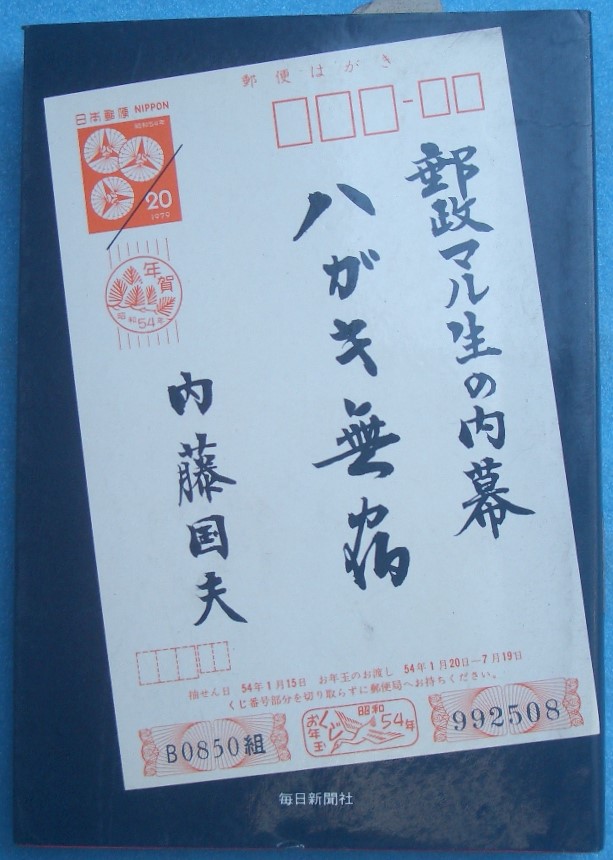 郵便はがき
日本郵便 NIPPON
昭和54年
20
1979
年賀
昭和54年
郵政マル生の内幕
ハガキ無宿
内藤国夫
抽せん日 54年1月15日 お年玉のお渡し 54年1月20日―7月19日
くじ番号部分を切り取らずに郵便局へお持ちください。
B0850組
お年玉
くじ
昭和
54年
992508
毎日新聞社